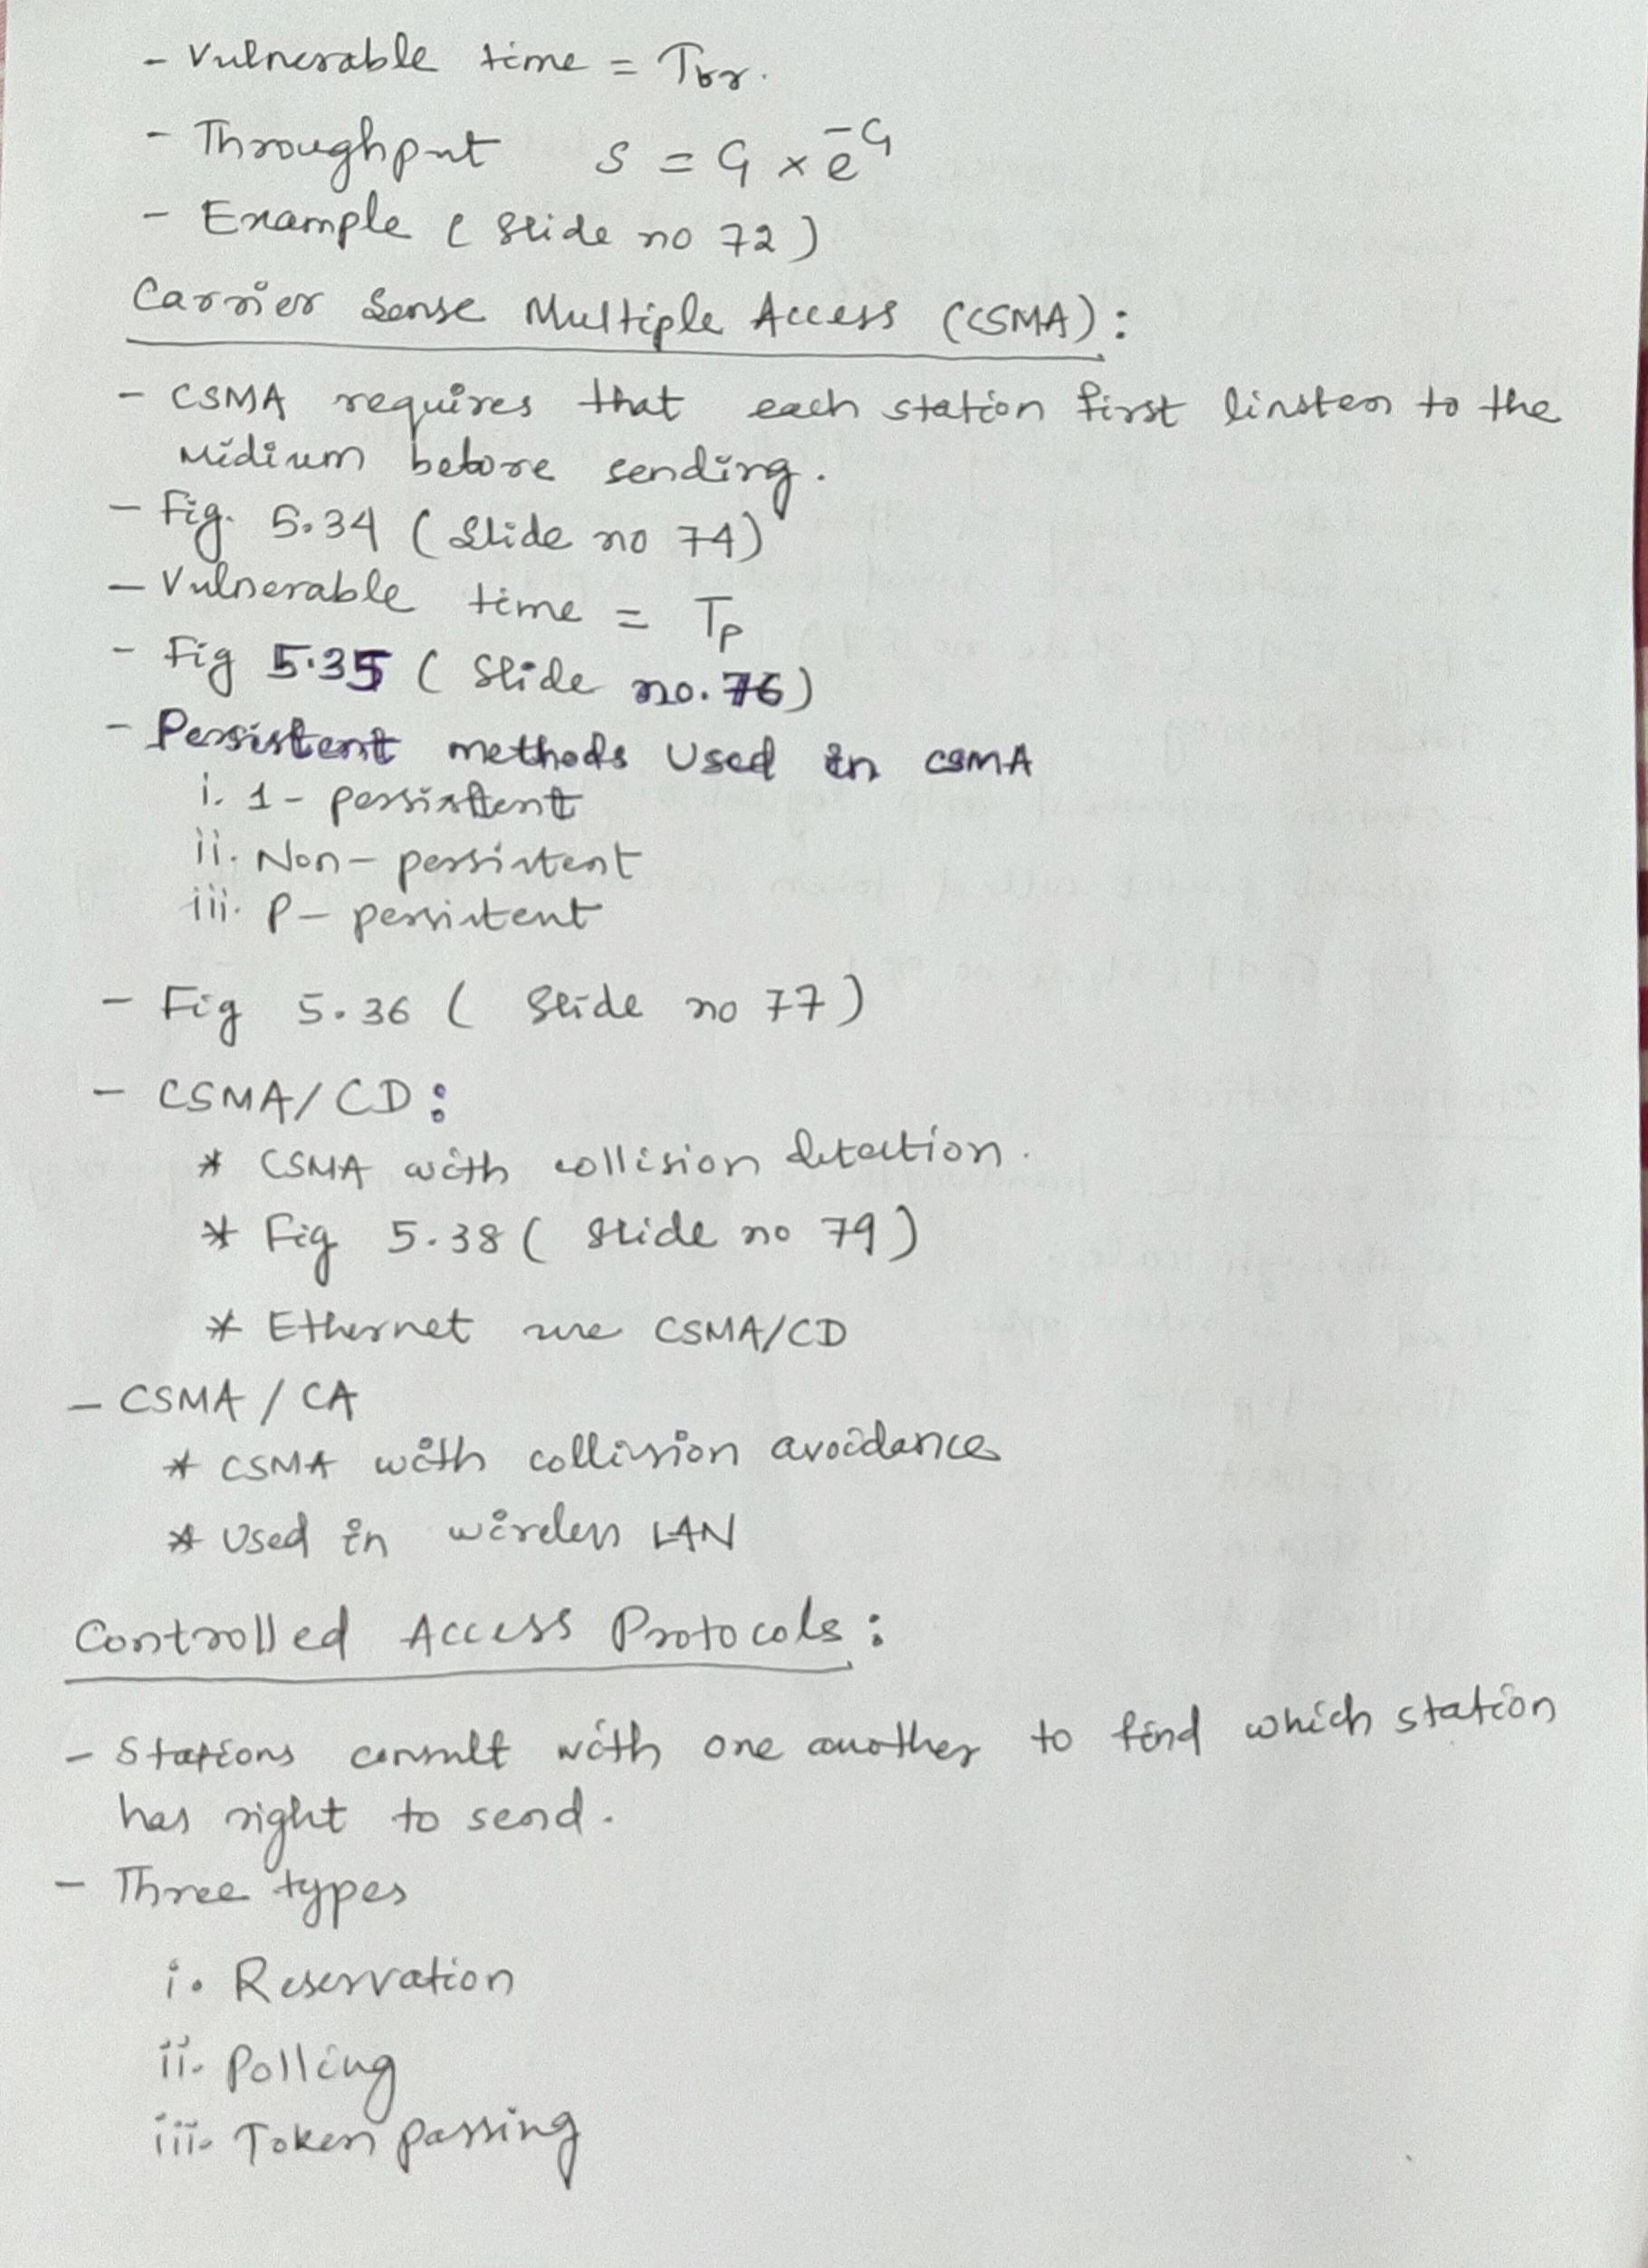 - Vulnerable time = Tfr.
- Throughput S = G × e^-G
- Example ( Slide no 72 )
Carrier Sense Multiple Access (CSMA) :
- CSMA requires that each station first linsten to the
midium before sending.
- Fig. 5.34 ( Slide no 74 )
- Vulnerable time = Tp
- Fig 5.35 ( Slide no. 76 )
- Persistent methods Used in CSMA
i. 1 - persistent
ii. Non - persistent
iii. P - persistent
- Fig 5.36 ( Slide no 77 )
- CSMA/CD :
* CSMA with collision detection.
* Fig 5.38 ( Slide no 79 )
* Ethernet use CSMA/CD
- CSMA / CA
* CSMA with collision avoidance
* Used in wireless LAN
Controlled Access Protocols :
- Stations consult with one another to find which station
has right to send.
- Three types
i. Reservation
ii. Polling
iii. Token passing